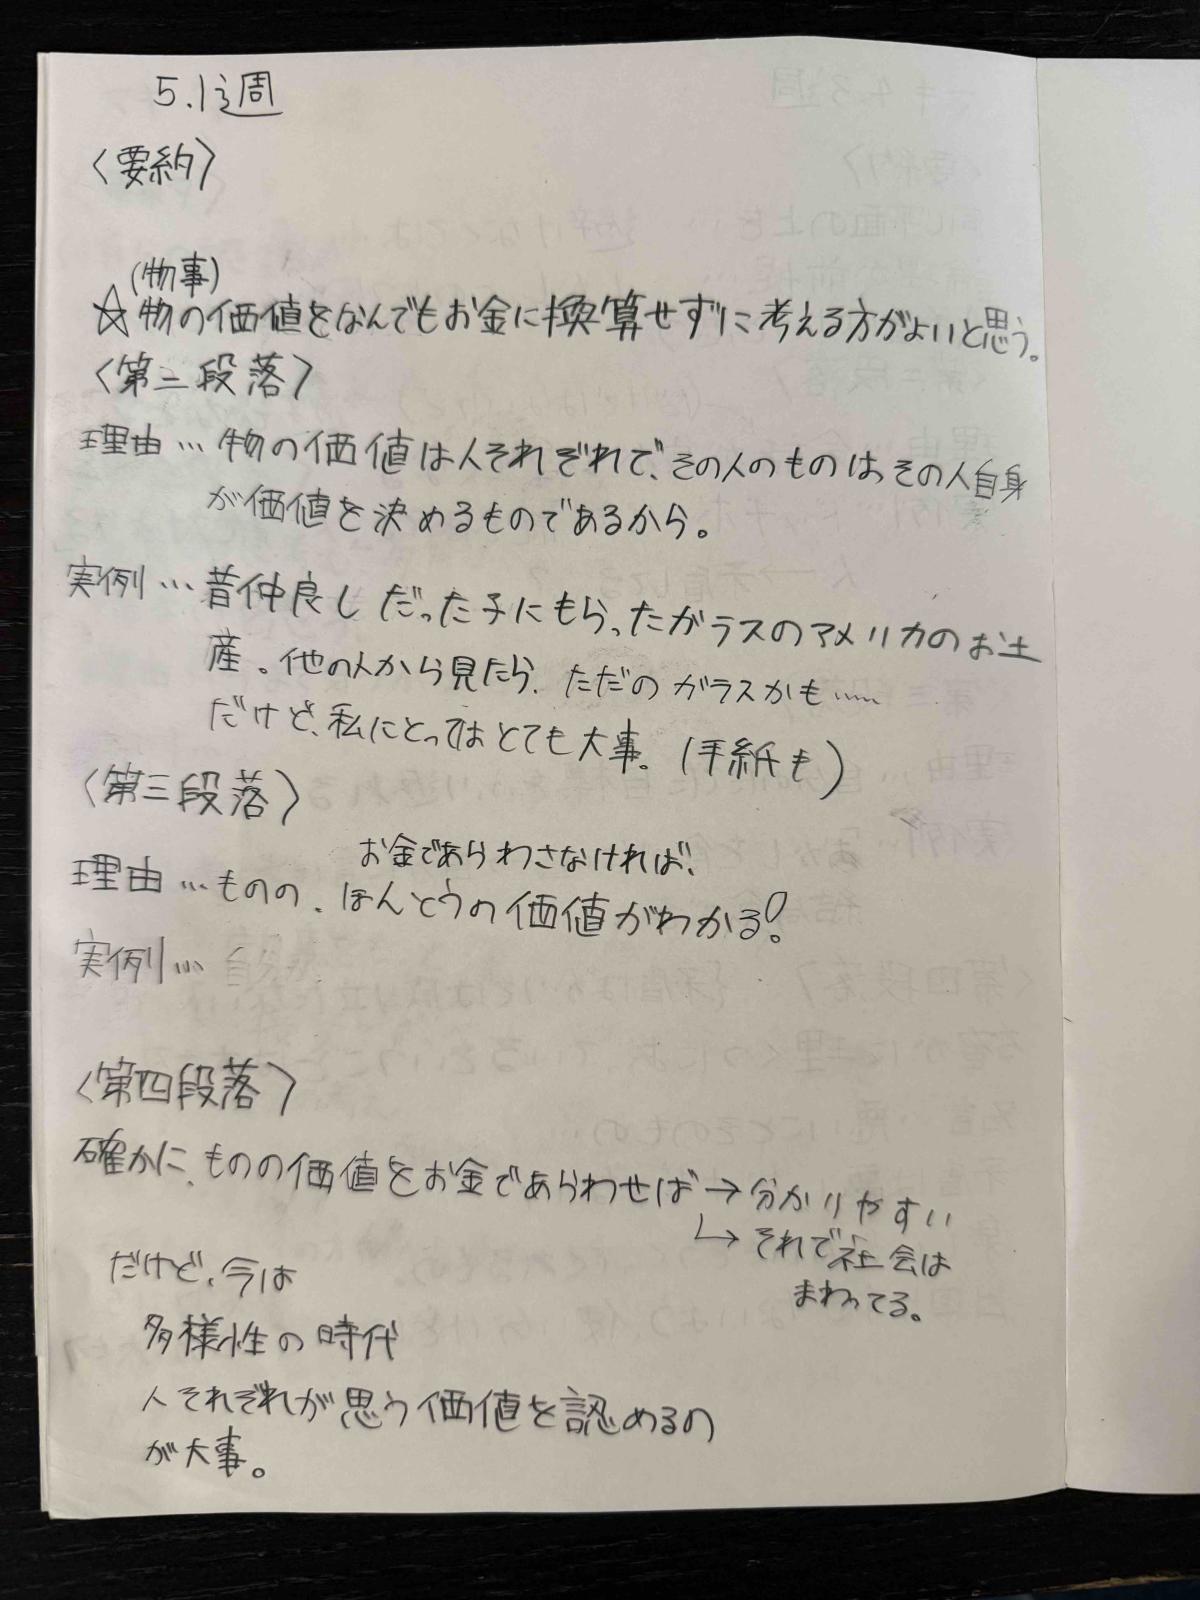 5.1週
〈要約〉
(物事)
☆物の価値をなんでもお金に換算せずに考える方がよいと思う。
〈第二段落〉
理由…物の価値は人それぞれで、その人のものは、その人自身
が価値を決めるものであるから。
実例…昔仲良しだった子にもらったガラスのアメリカのお土
産。他の人から見たら、ただのガラスかも……
だけど、私にとってはとても大事。(手紙も)
〈第三段落〉
お金であらわさなければ、
理由…ものの、ほんとうの価値がわかる!
実例…
〈第四段落〉
確かに、ものの価値をお金であらわせば→分かりやすい
↳それで社会は
まわってる。
だけど、今は
多様性の時代
人それぞれが思う価値を認めるの
が大事。